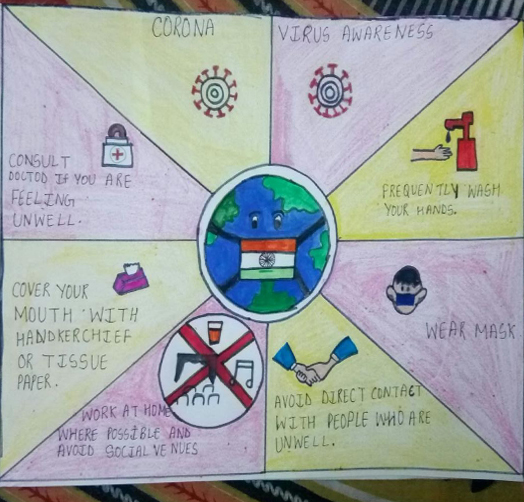 CORONA
VIRUS AWARENESS
CONSULT
DOCTOD If YOU ARE
FEELING
UNWELL.
FREQUENTLY WASH
YOUR HANDS.
COVER YOUR
MOUTH WITH
HANDKERCHIEF
OR TISSUE
PAPER.
WEAR MASK
WORK AT HOME
WHERE POSSIBLE AND
AVOID SOCIAL VENUES
AVOID DIRECT CONTACT
WITH PEOPLE WHO ARE
UNWELL.